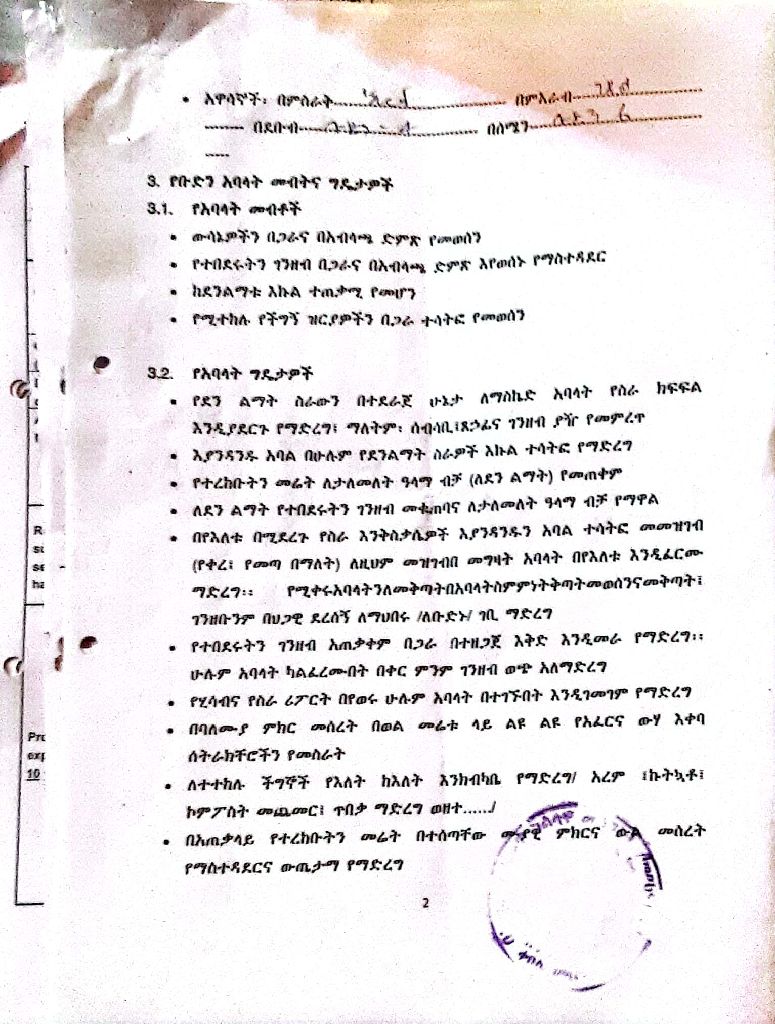 • አዋሳኞች፡ በምስራቅ................ በምእራብ................
------- በደቡብ................ በሰሜን................
-----
3. የቡድን አባላት መብትና ግዴታዎች
3.1. የአባላት መብቶች
• ውሳኔዎችን በጋራና በአብላጫ ድምጽ የመወሰን
• የተበደሩትን ገንዘብ በጋራና በአብላጫ ድምጽ እየወሰኑ የማስተዳደር
• ከደንልማቱ እኩል ተጠቃሚ የመሆን
• የሚተከሉ የችግኝ ዝርያዎችን በጋራ ተሳትፎ የመወሰን
3.2. የአባላት ግዴታዎች
• የደን ልማት ስራውን በተደራጀ ሁኔታ ለማስኬድ አባላት የስራ ክፍፍል
እንዲያደርጉ የማድረግ፤ ማለትም፡ ሰብሳቢ፤ጸኃፊና ገንዘብ ያዥ የመምረጥ
• እያንዳንዱ አባል በሁሉም የደንልማት ስራዎች እኩል ተሳትፎ የማድረግ
• የተረከቡትን መሬት ለታለመለት ዓላማ ብቻ (ለደን ልማት) የመጠቀም
• ለደን ልማት የተበደሩትን ገንዘብ መቁጠባና ለታለመለት ዓላማ ብቻ የማዋል
• በየእለቱ በሚደረጉ የስራ እንቅስቃሴዎች እያንዳንዱን አባል ተሳትፎ መመዝገብ
(የቀረ፤ የመጣ በማለት) ለዚህም መዝገብበ መግዛት አባላት በየእለቱ እንዲፈርሙ
ማድረግ፡፡ የሚቀሩአባላትንለመቅጣትበአባላትስምምነትቅጣትመወሰንናመቅጣት፤
ገንዘቡንም በህጋዊ ደረሰኝ ለማህበሩ /ለቡድኑ/ ገቢ ማድረግ
• የተበደሩትን ገንዘብ አጠቃቀም በጋራ በተዘጋጀ እቅድ እንዲመራ የማድረግ፡፡
ሁሉም አባላት ካልፈረሙበት በቀር ምንም ገንዘብ ወጭ አለማድረግ
• የሂሳብና የስራ ሪፖርት በየወሩ ሁሉም አባላት በተገኙበት እንዲገመገም የማድረግ
• በባለሙያ ምክር መሰረት በወል መሬቱ ላይ ልዩ ልዩ የአፈርና ውሃ እቀባ
ሰትራክቸሮችን የመስራት
• ለተተከሉ ችግኞች የእለት ከእለት እንክብካቤ የማድረግ/ አረም ፤ኩትኳቶ፤
ኮምፖስት መጨመር፤ ጥበቃ ማድረግ ወዘተ....../
• በአጠቃላይ የተረከቡትን መሬት በተሰጣቸው ሙያዊ ምክርና ውል መሰረት
የማስተዳደርና ውጤታማ የማድረግ
2